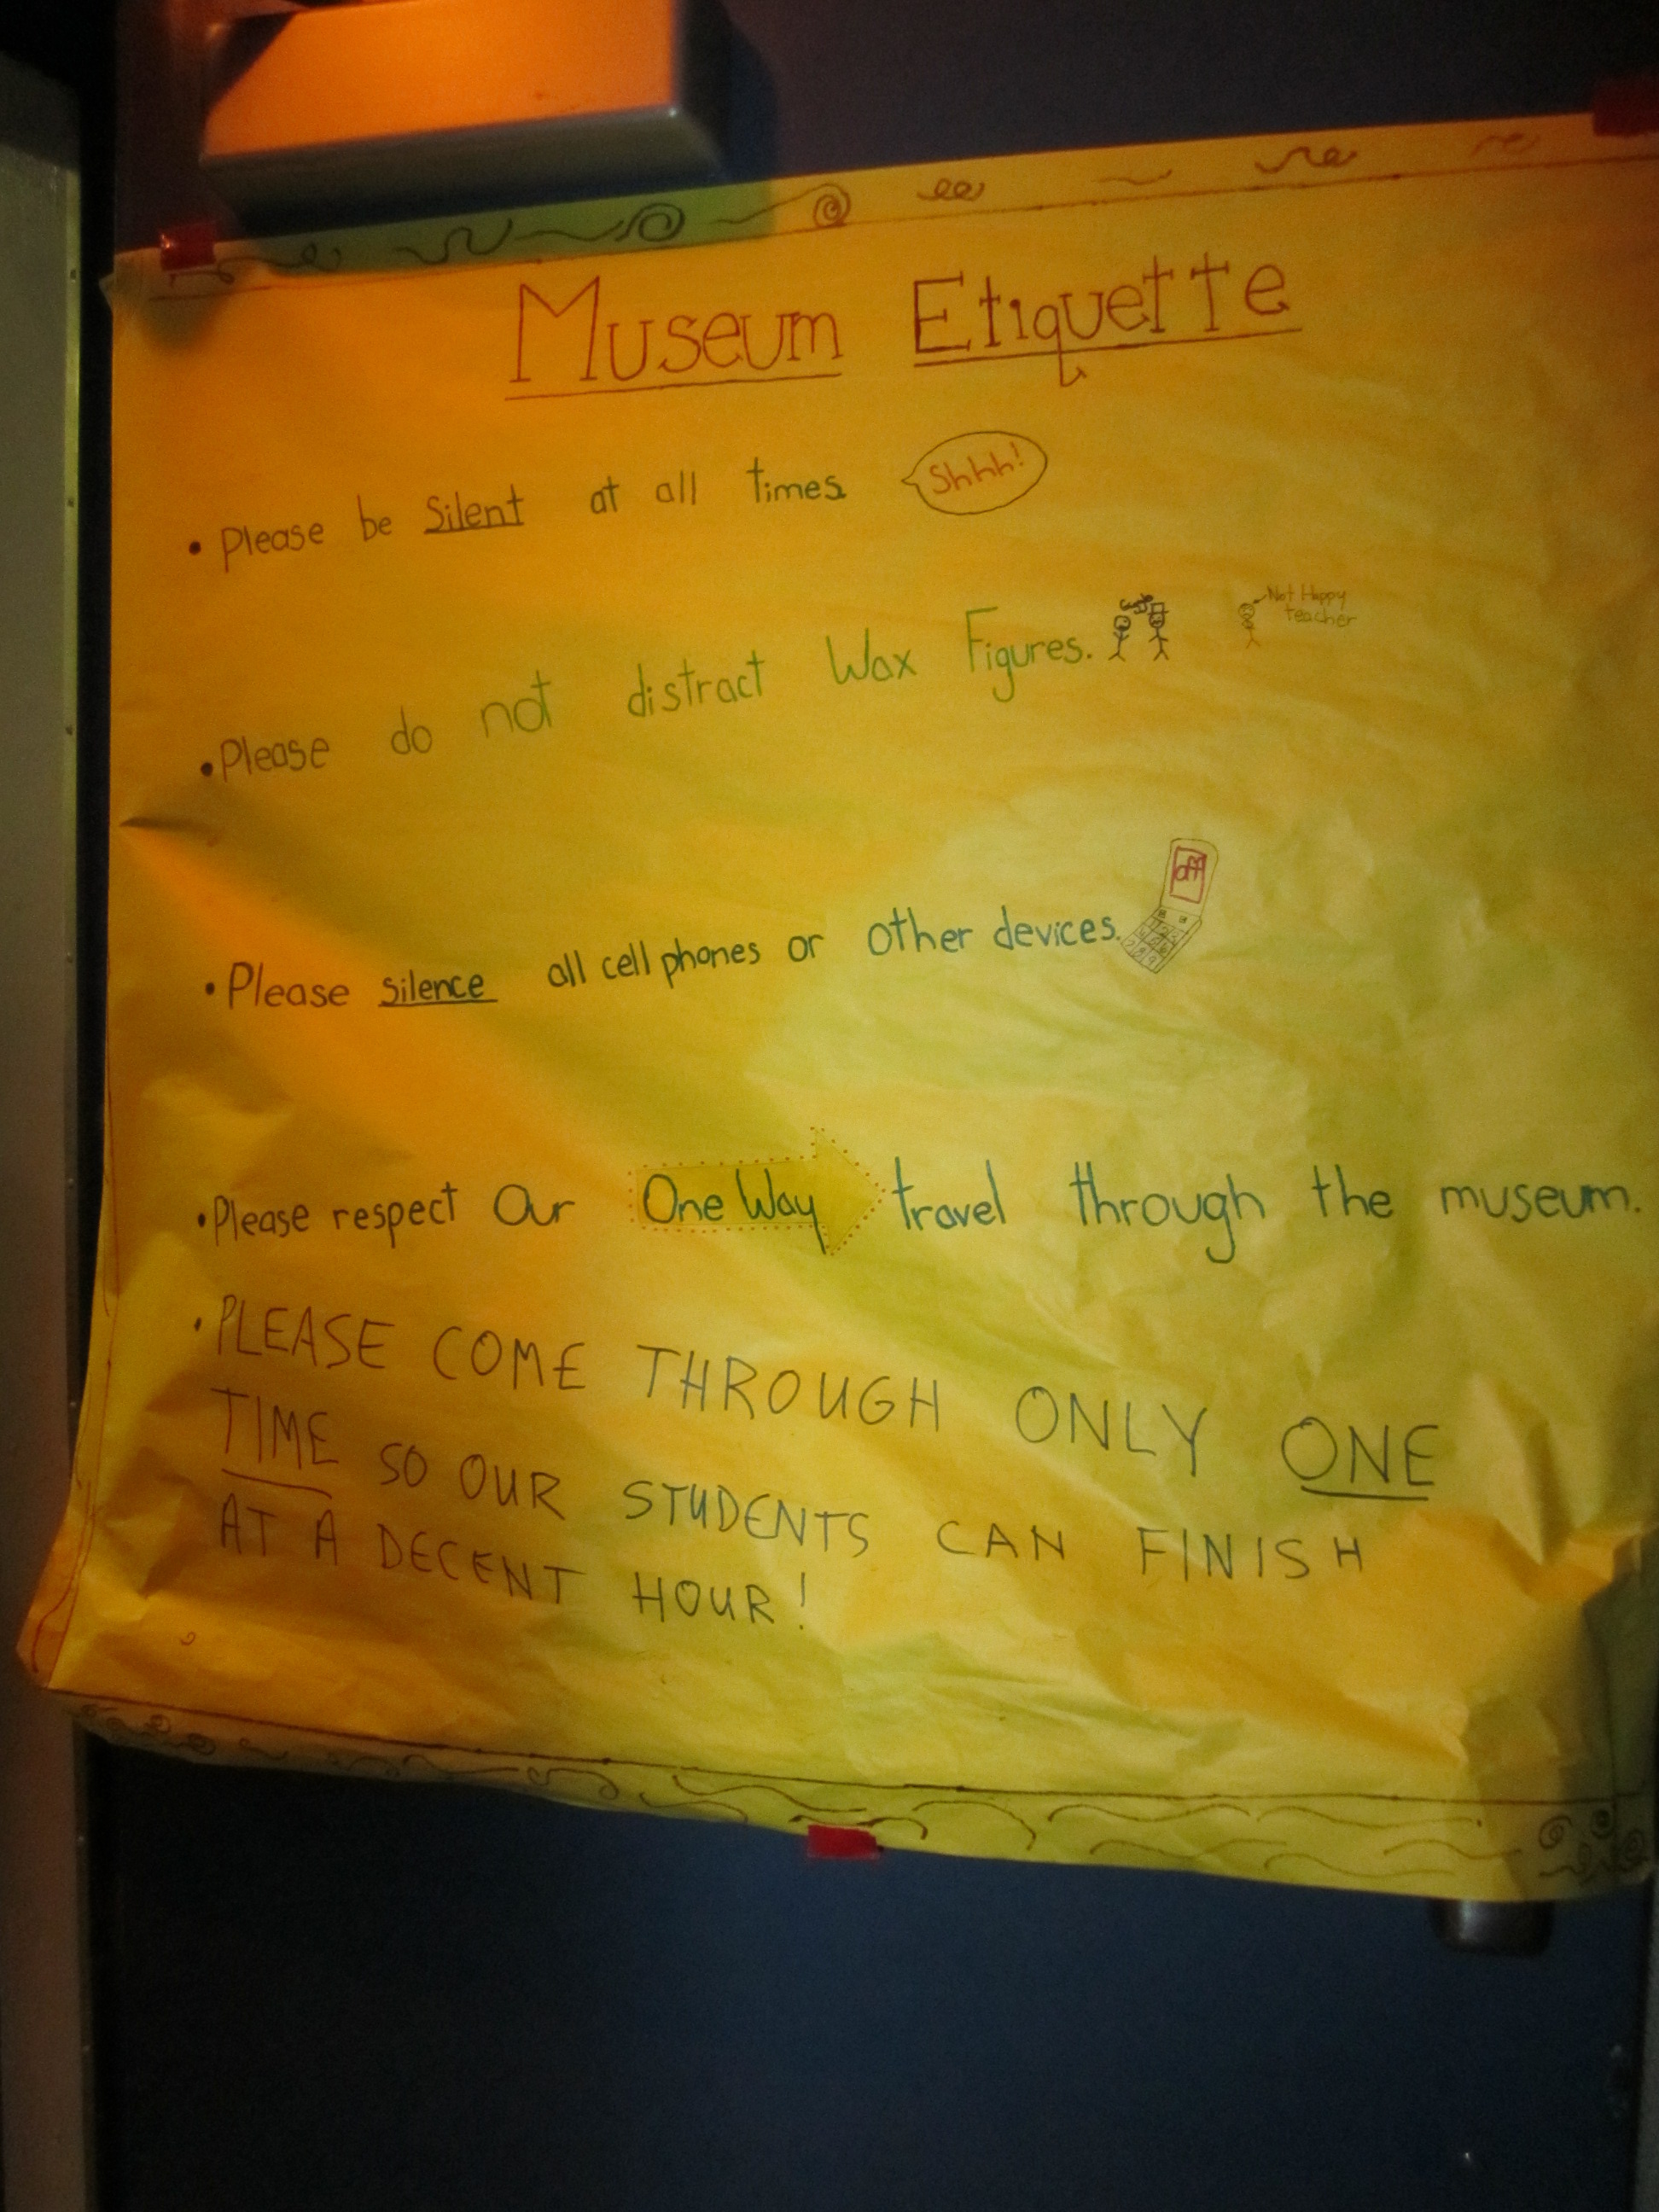 Museum Etiquette
• Please be Silent at all times Shhh!
• Please do not distract Wax Figures. Not Happy
teacher
off
• Please silence all cell phones or other devices.
• Please respect Our One Way travel through the museum.
• PLEASE COME THROUGH ONLY ONE
TIME SO OUR STUDENTS CAN FINISH
AT A DECENT HOUR!